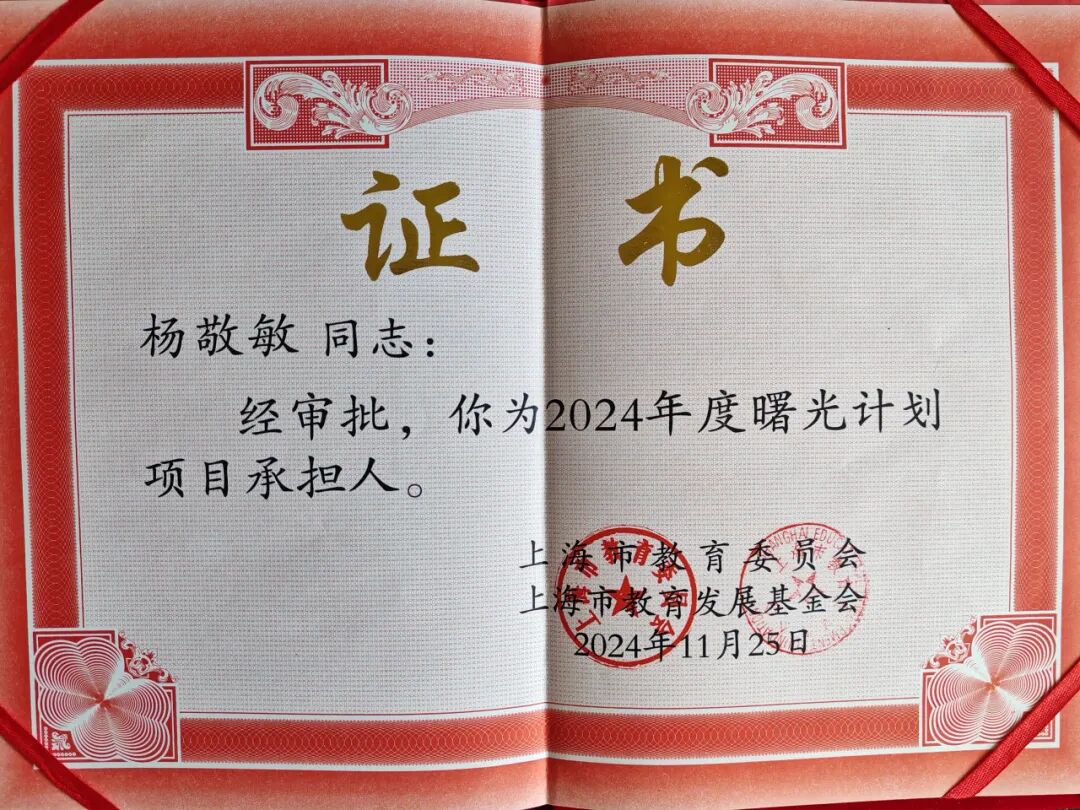 证 书
杨敬敏 同志：
经审批，你为2024年度曙光计划
项目承担人。
上海市教育委员会
上海市教育发展基金会
2024年11月25日
上海市教育委员会
SHANGHAI EDUC